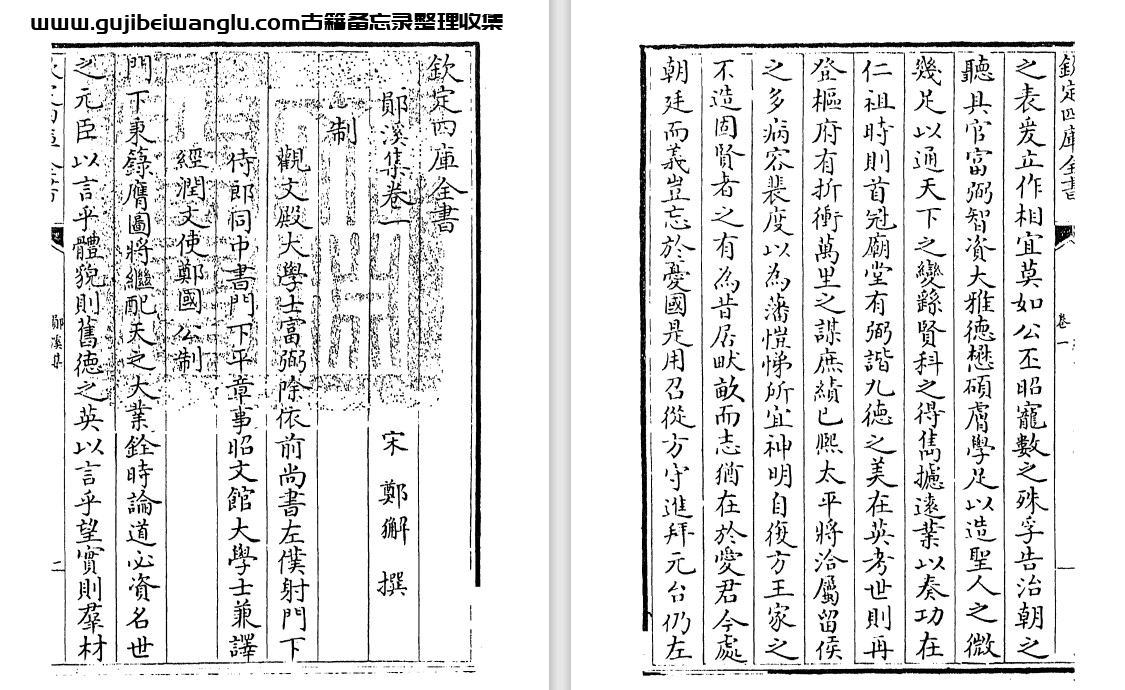 www.gujibeiwanglu.com古籍备忘录整理收集
欽定四庫全書
鄖溪集卷一
宋 鄭獬 撰
制
觀文殿大學士富弼除依前尚書左僕射門下
侍郎同中書門下平章事昭文館大學士兼譯
經潤文使鄭國公制
門下秉籙膺圖將繼配天之大業銓時論道必資名世
之元臣以言乎體貌則舊德之英以言乎望實則羣材
鄖溪集
二
欽定四庫全書
卷一
之表爰立作相宜莫如公丕昭寵數之殊孚告治朝之
聽具官富弼智資大雅德懋碩膚學足以造聖人之微
幾足以通天下之變繇賢科之得雋攄遠業以奏功在
仁祖時則首冠廟堂有弼諧九德之美在英考世則再
登樞府有折衝萬里之謀庶績已熙太平將洽屬留侯
之多病容裴度以為藩愷悌所宜神明自復方王家之
不造固賢者之有為昔居畎畝而志猶在於愛君今處
朝廷而義豈忘於憂國是用召從方守進拜元台仍左